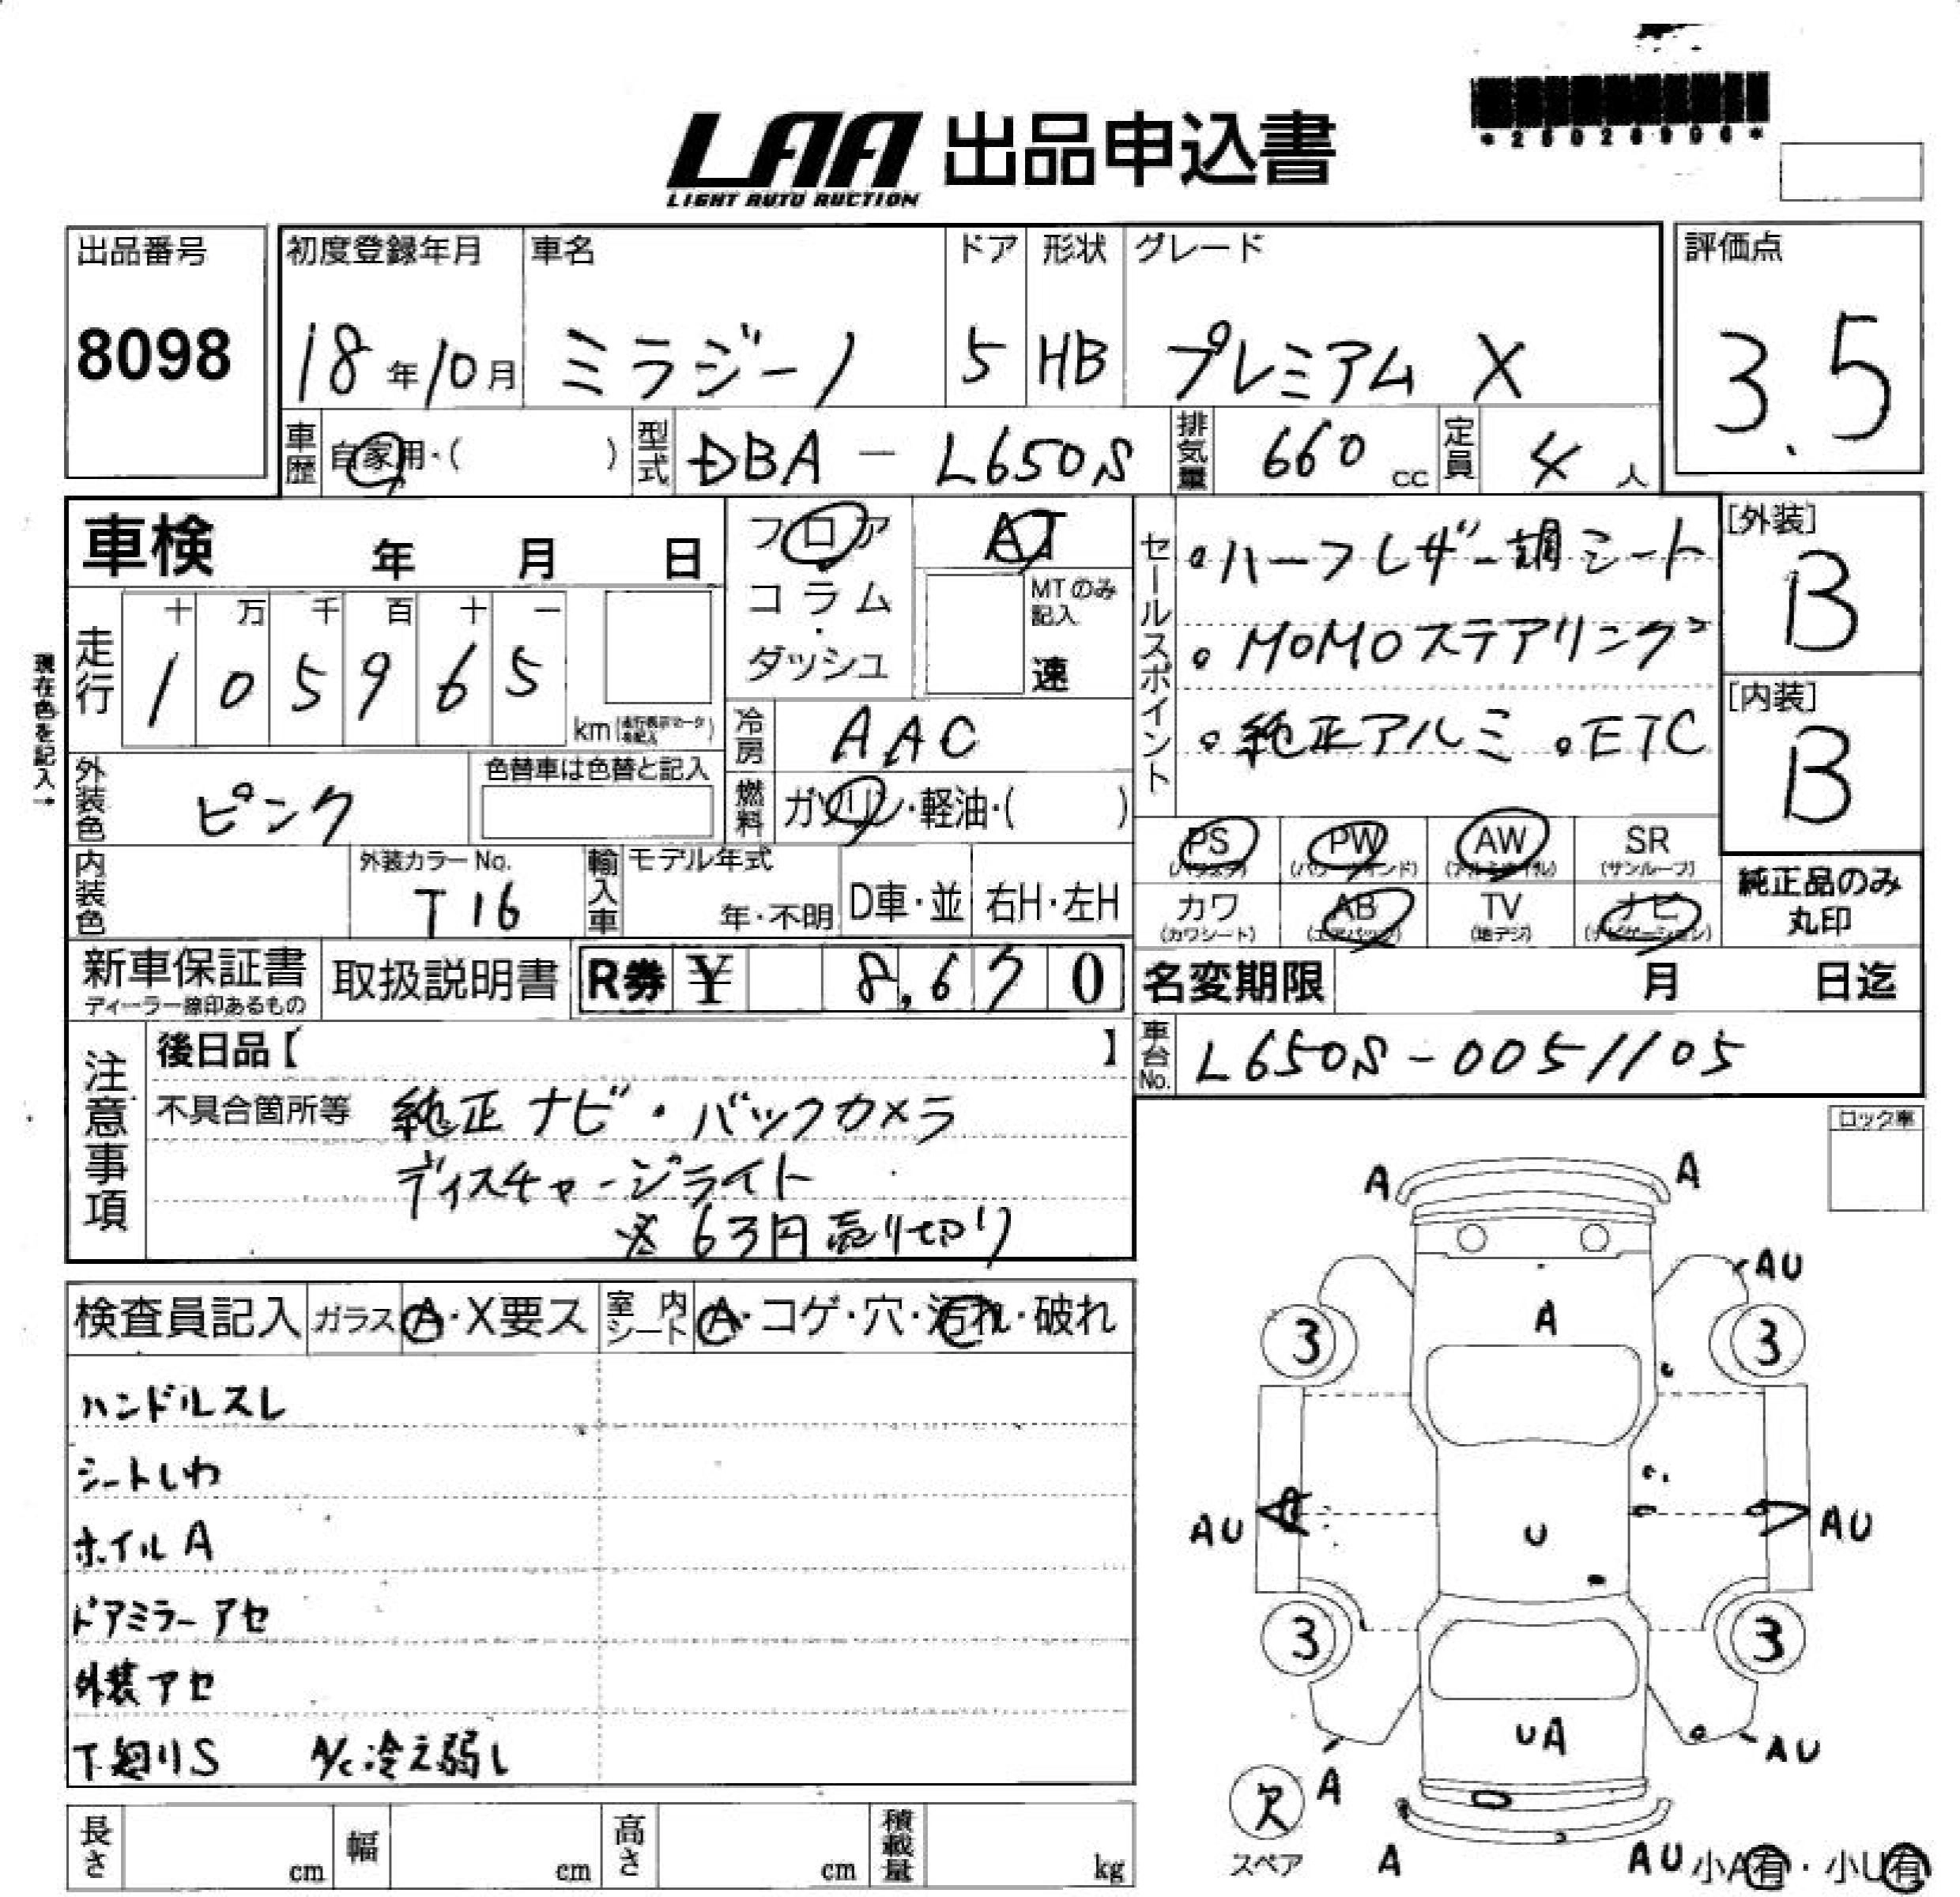 *25026906*
LAA 出品申込書
LIGHT AUTO AUCTION
出品番号 8098
初度登録年月 18年10月
車名 ミラジーノ
ドア 5
形状 HB
グレード プレミアム X
評価点 3.5
車歴 自家用・( )
型式 DBA - L650S
排気量 660 cc
定員 4人
車検 年 月 日
フロア
コラム・ダッシュ
AT
MTのみ記入
速
走行 十 万 千 百 十 一
1 0 5 9 6 5
km
現在色を記入→
冷房 AAC
燃料 ガソリン・軽油・( )
外装色 ピンク
色替車は色替と記入
内装色
外装カラーNo. T16
輸入車 モデル年式
年・不明 D車・並 右H・左H
セールスポイント
・ハーフレザー調シート
・MOMOステアリング
・純正アルミ ・ETC
[外装] B
[内装] B
PS (パワステ) PW (パワーウインド) AW (アルミホイル) SR (サンルーフ)
カワ (カワシート) AB (エアバッグ) TV (地デジ) ナビ (ナビゲーション)
純正品のみ丸印
新車保証書
取扱説明書
R券 ¥ 8,670
名変期限 月 日迄
車台No. L650S-0051105
注意事項
後日品【 】
不具合箇所等 純正ナビ・バックカメラ
ディスチャージライト
※ 63円売り切り
検査員記入 ガラス A・X要ス 室内シート A・コゲ・穴・汚れ・破れ
ハンドルスレ
シートしわ
ホイルA
ドアミラーアセ
外装アセ
下廻りS A/C冷え弱し
長さ cm 幅 cm 高さ cm 積載量 kg
ロック車
A A
AU
A
3 3
AU U AU
3 3
UA
AU
欠 A
スペア A AU 小A有・小U有